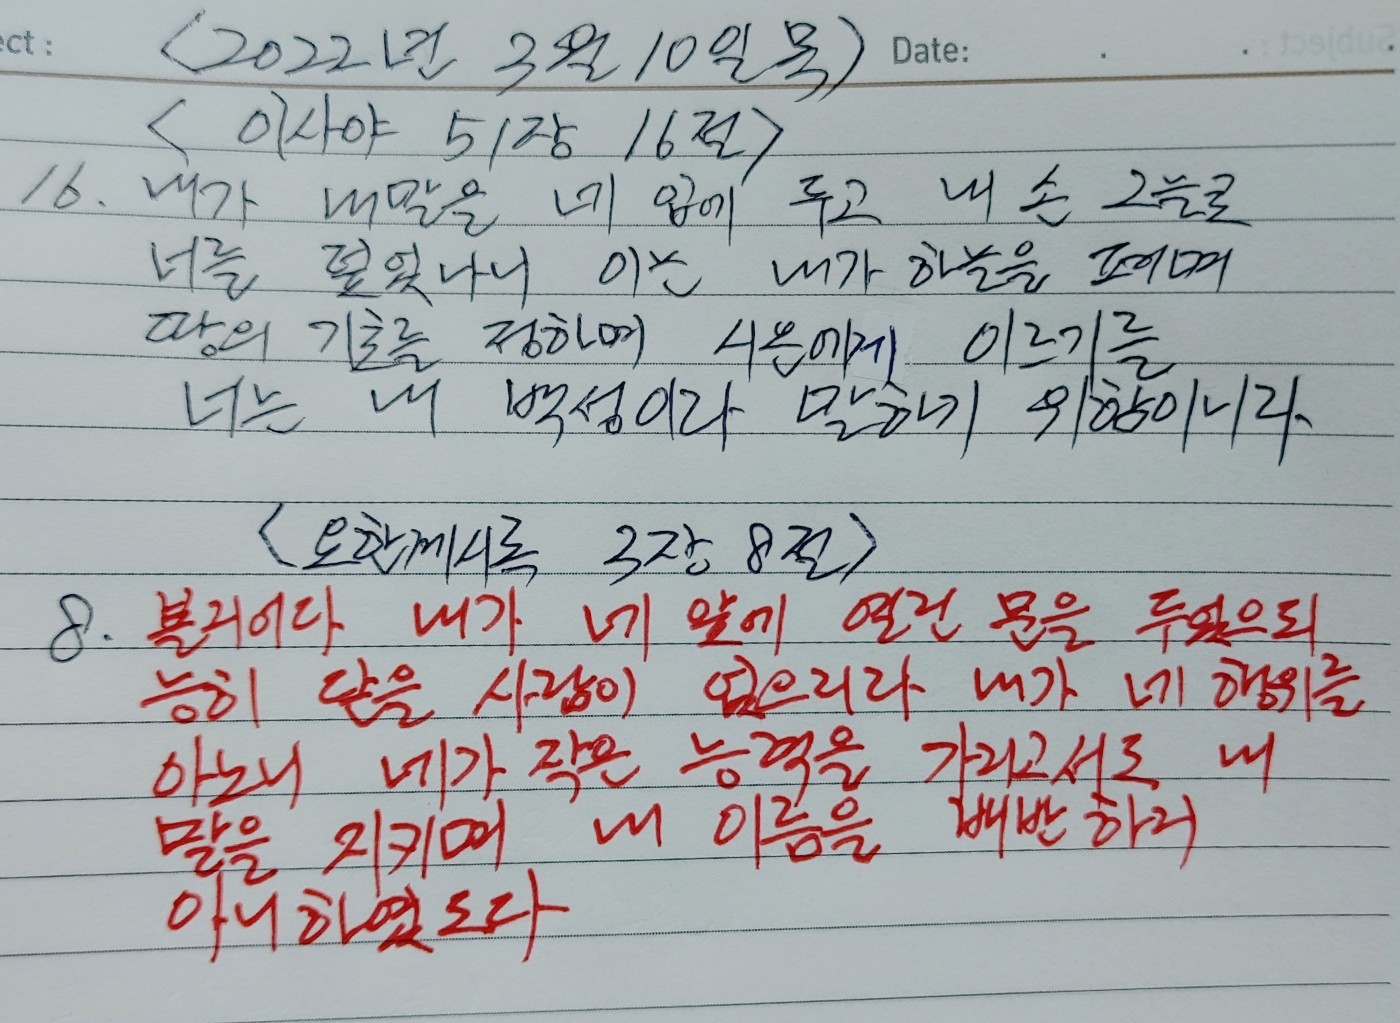 ect :
<2022년 3월 10일 목> Date: . .
<이사야 51장 16절>
16. 내가 내말을 네 입에 두고 내 손 그늘로
너를 덮었나니 이는 내가 하늘을 펴며
땅의 기초를 정하며 시온에게 이르기를
너는 내 백성이라 말하기 위함이니라.
<요한계시록 3장 8절>
8. 볼지어다 내가 네 앞에 열린 문을 두었으되
능히 닫을 사람이 없으리라 내가 네 행위를
아노니 네가 작은 능력을 가지고서도 내
말을 지키며 내 이름을 배반하지
아니하였도다